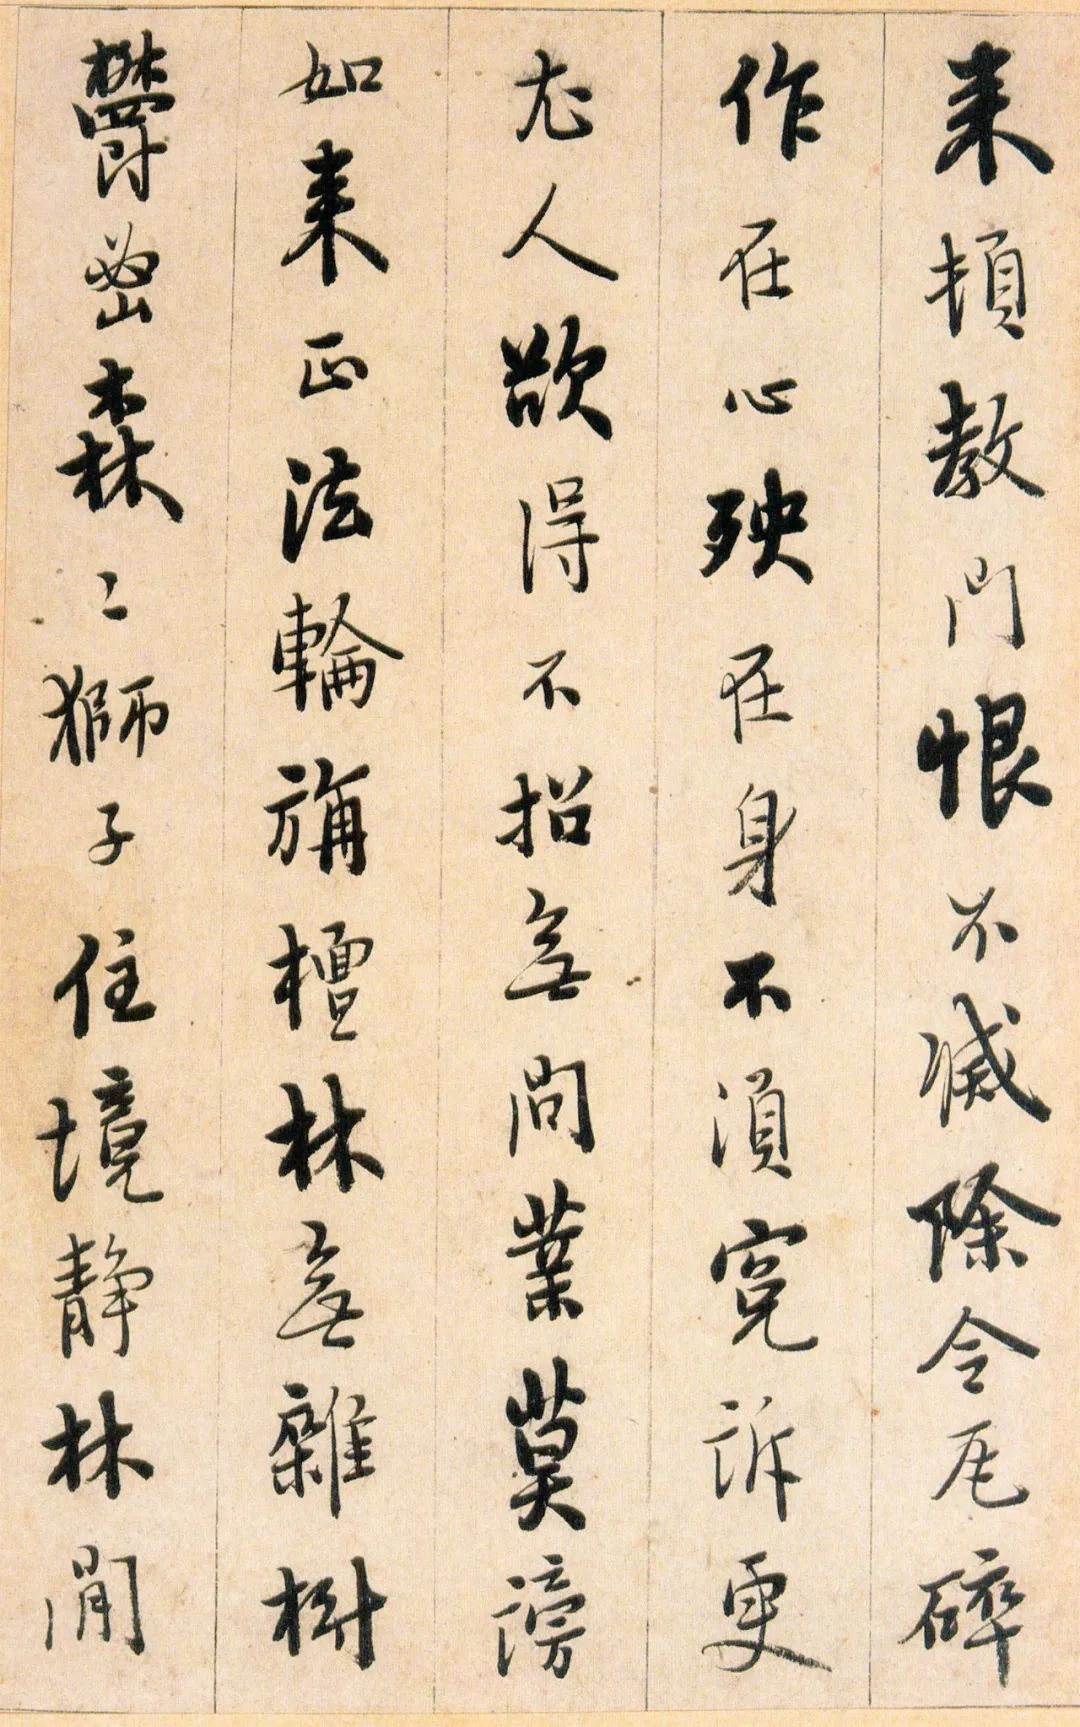 来頓教門恨不滅除令瓦碎
作在心殃在身不須寃訴更
尤人欲得不招無间業莫謗
如来正法輪旃檀林無雜樹
欝密森〻獅子住境静林閒